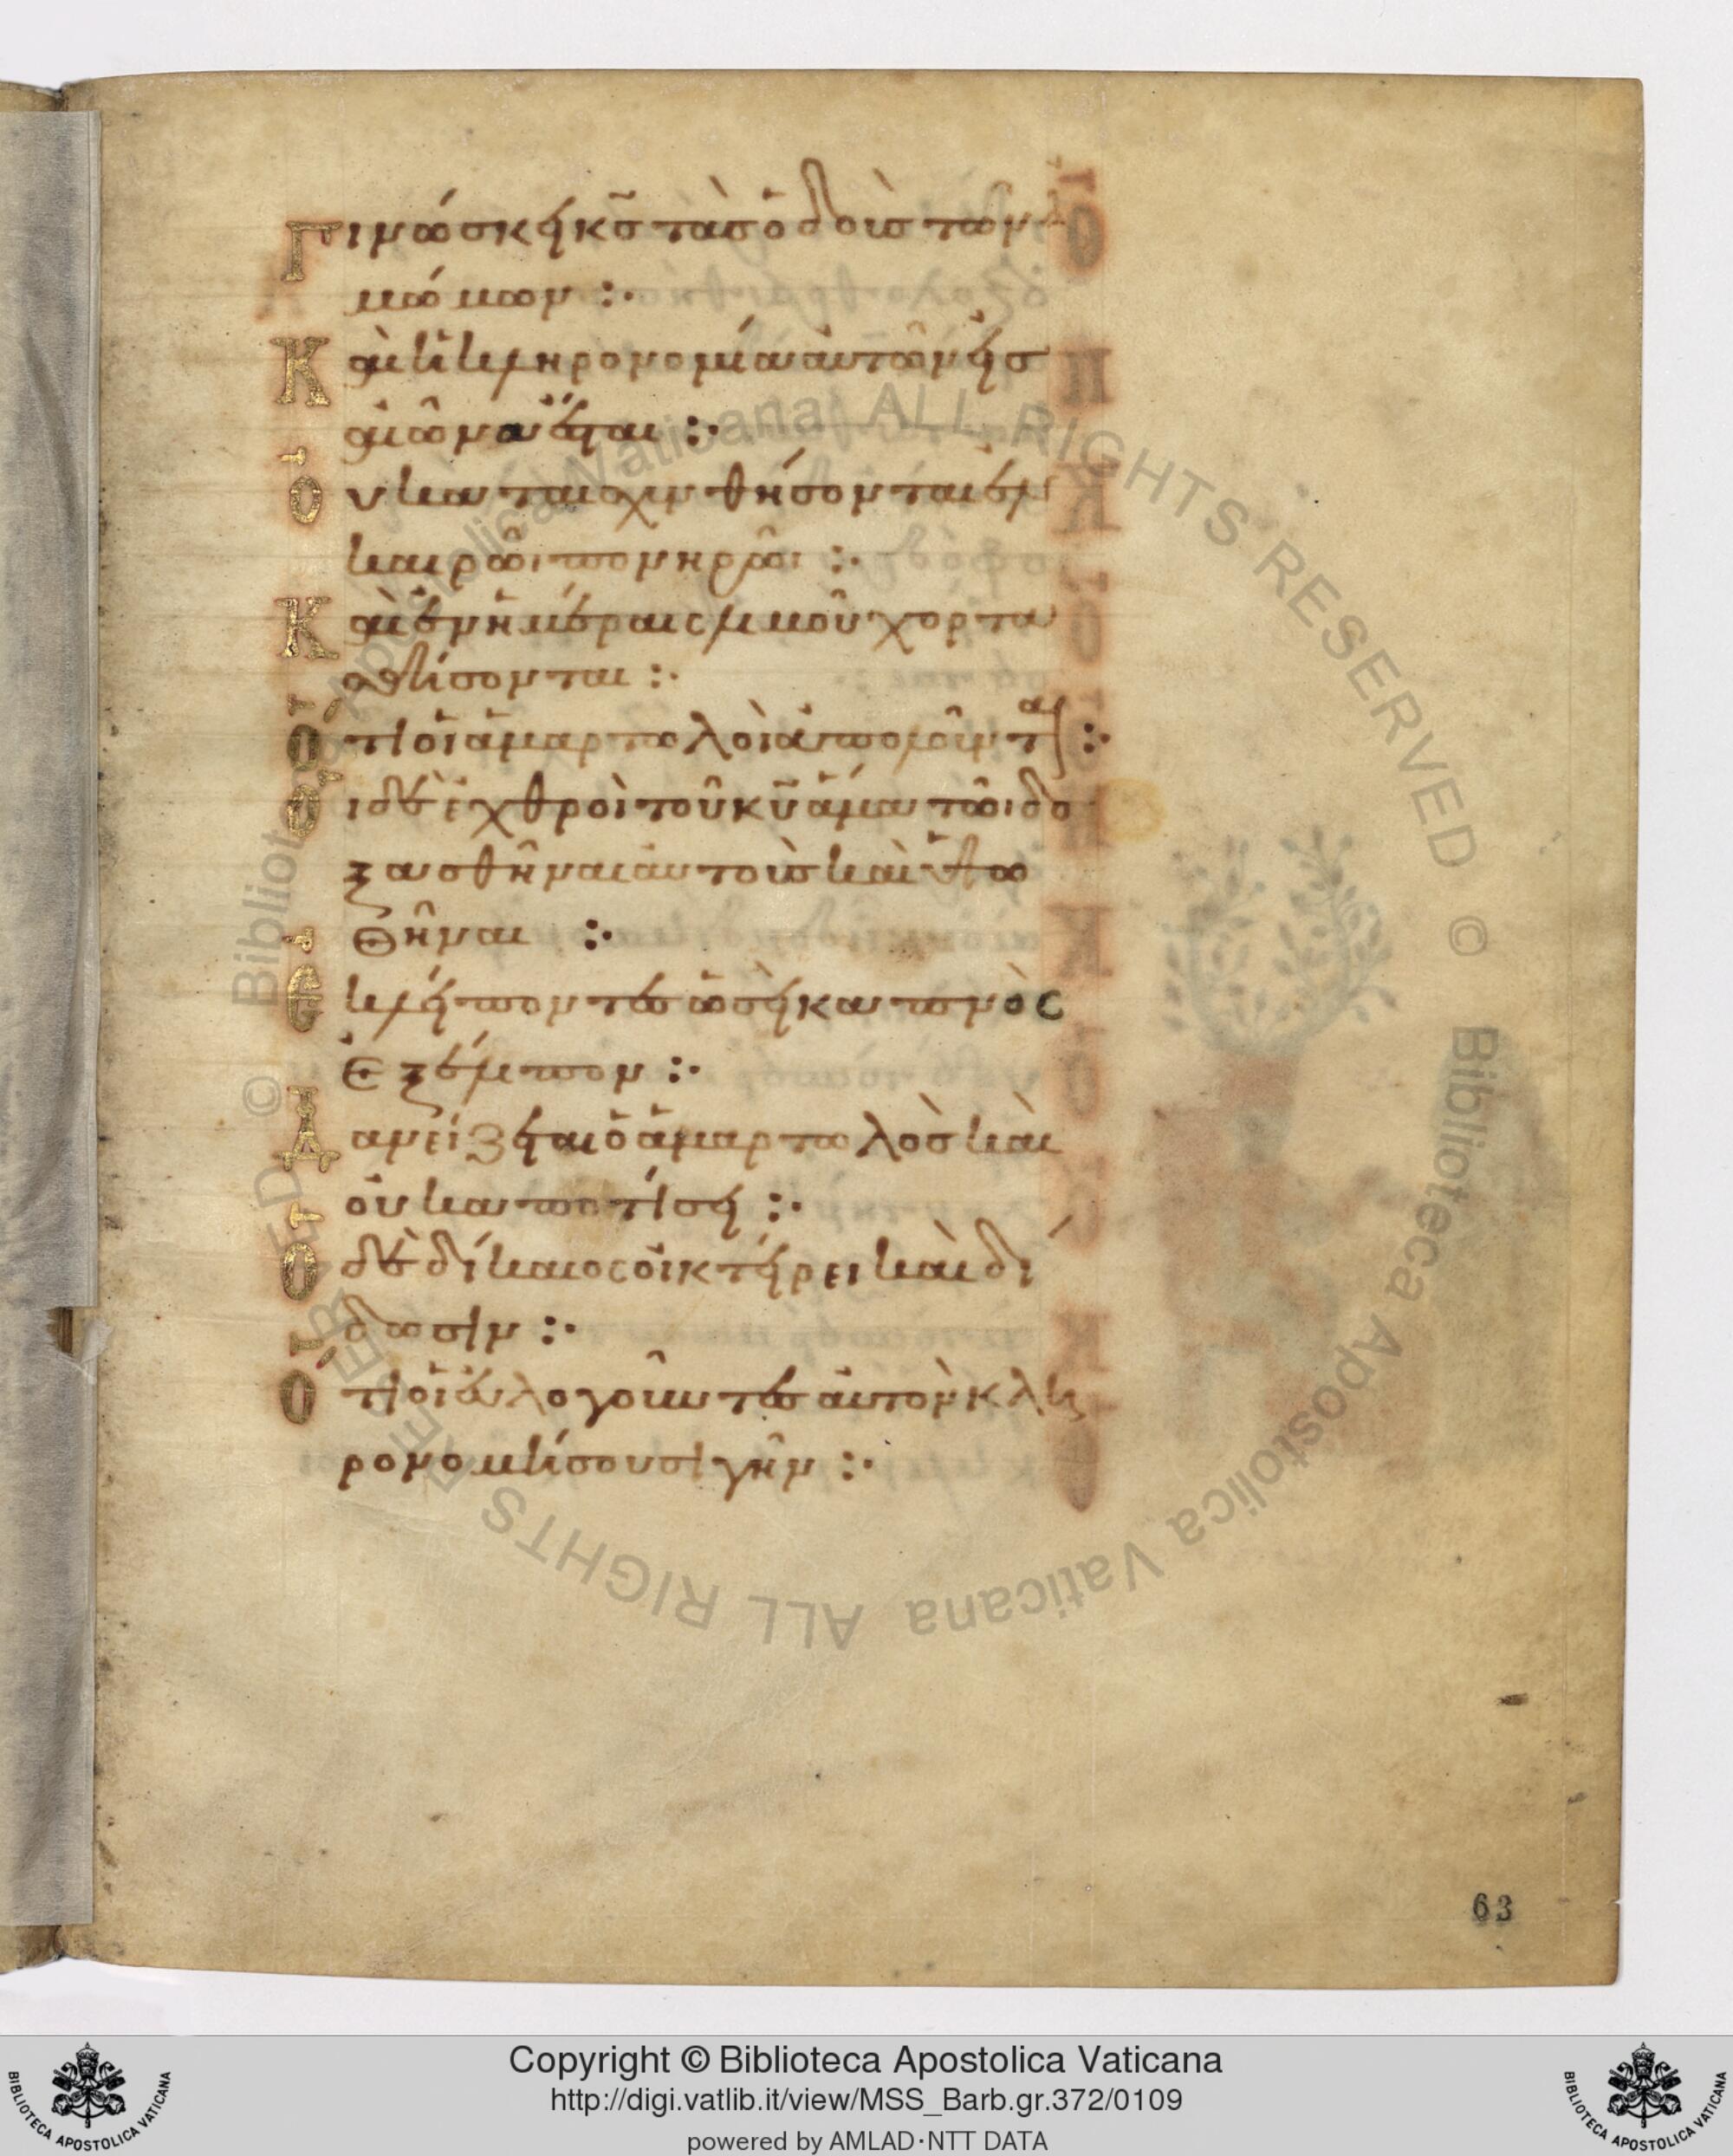 Γινώσκει κ̅ς̅ τὰς ὁδοὺς τῶν ἀ
μώμων :·
Καὶ ἡ κληρονομία αὐτῶν εἰς
αἰῶνα ἔσται :·
Οὐ καταισχυνθήσονται ἐν
καιρῶι πονηρῶι :·
Καὶ ἐν ἡμέραις λιμοῦ χορτα
σθήσονται :·
Ὅτι οἱ ἁμαρτωλοὶ ἀπολοῦντ :·
Οἱ δὲ ἐχθροὶ τοῦ κ̅υ̅ ἅμα τῶι δο
ξασθῆναι αὐτοὺς καὶ ὑψω
θῆναι :·
Ἐκλείποντες ὡσεὶ καπνὸς
ἐξέλιπον :·
Δανείζεται ὁ ἁμαρτωλὸς καὶ
οὐκ ἀποτίσει :·
Ὁ δὲ δίκαιος οἰκτείρει καὶ δί
δωσιν :·
Ὅτι οἱ εὐλογοῦντες αὐτὸν κλη
ρονομήσουσι γῆν :·
63
Copyright © Biblioteca Apostolica Vaticana
http://digi.vatlib.it/view/MSS_Barb.gr.372/0109
powered by AMLAD·NTT DATA
BIBLIOTECA APOSTOLICA VATICANA
BIBLIOTECA APOSTOLICA VATICANA
© Biblioteca Apostolica Vaticana ALL RIGHTS RESERVED © Biblioteca Apostolica Vaticana ALL RIGHTS RESERVED